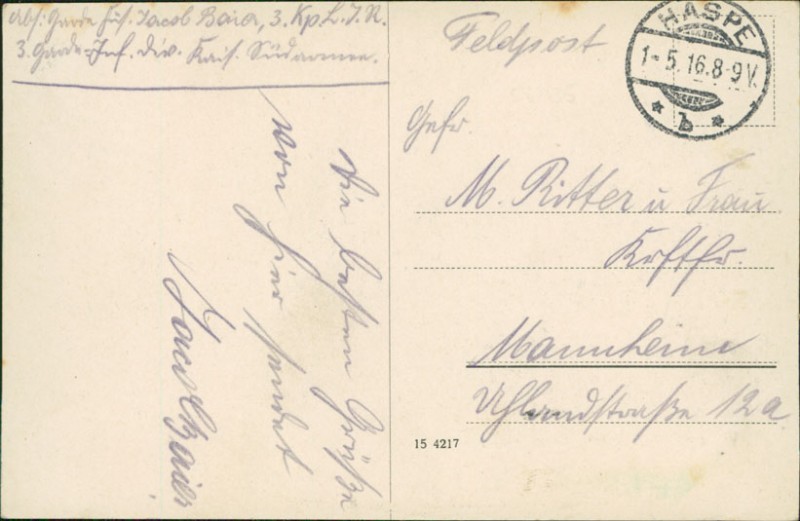 Abs: Garde Füs. Jacob Baier, 3. Kp L. J. R.
3. Garde-Inf. div. Kais. Südarmee.
die besten Grüße
von hier sendet
Jacob Baier
Feldpost
HASPE
1-5.16.8-9V.
* b *
Gefr.
M. Ritter u Frau
Mannheim
Uhlandstraße 12a
15 4217